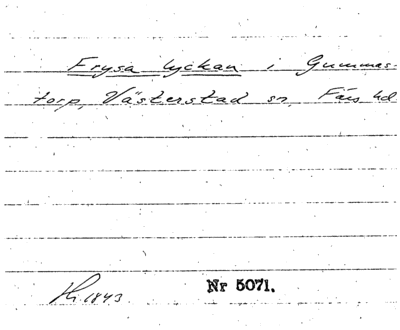 Frysa lyckan i Gummas-
torp, Västerstad sn, Färs hd
1843
Nr 5071.